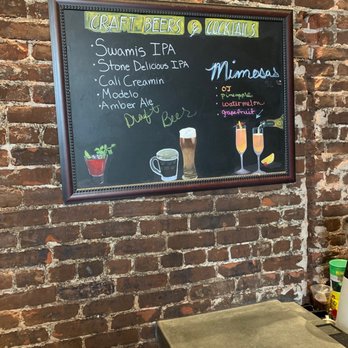 CRAFT BEERS & COCKTAILS
• Swamis IPA
• Stone Delicious IPA
• Cali Creamin
• Modelo
• Amber Ale
Draft Beer
Mimosas
• OJ
• pineapple
• watermelon
• grapefruit